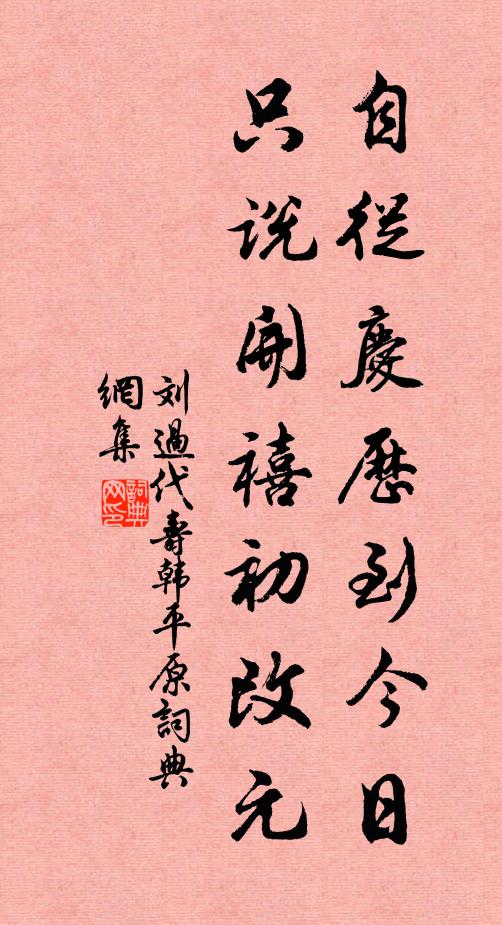 自從慶歷到今日
只說開禧初改元
刘過代壽韩平原詞典
網集
詞典網印